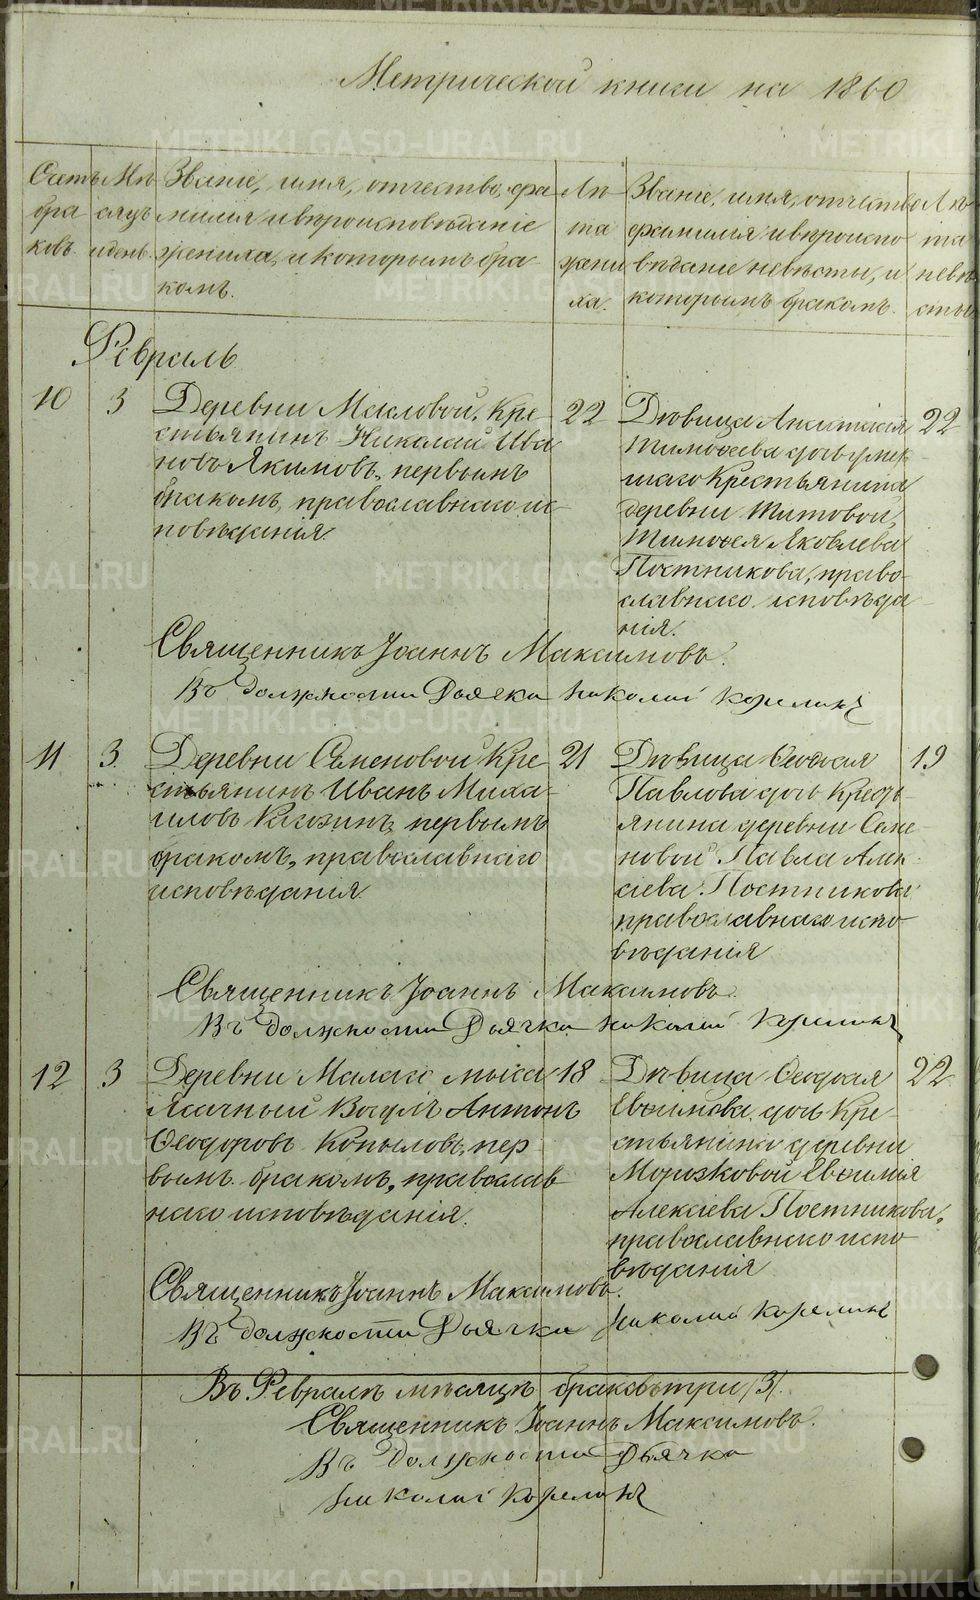 Метрической книги на 1860
Счетъ бра ковъ.
Мѣ сяцъ и день.
Званіе, имя, отчество, фа
милія и вѣроисповѣданіе
жениха, и которымъ бра
комъ.
Лѣ та жени ха.
Званіе, имя, отчество
фамилія и вѣроиспо
вѣданіе невѣсты, и
которымъ бракомъ.
Лѣ та невѣ сты
Февраль
10 3
Деревни Масловой, Кре-
стьянинъ Николай Ива
новъ Якимовъ, первымъ
бракомъ, православнаго ис-
повѣданія.
22
Дѣвица
Тимоѳеева дочь умер
шаго Крестьянина
деревни Титовой,
Тимоѳея Яковлева
Постникова, право-
славнаго исповѣда
нія.
22
Священникъ Іоаннъ Максимовъ.
Въ должности Дьячка Николай Корелинъ
11 3.
Деревни Семеновой Кре
стьянинъ Иванъ Миха-
иловъ первымъ
бракомъ, православнаго
исповѣданія.
21
Дѣвица
Павлова дочь Кресть
янина деревни Семе-
новой Павла Алек-
сіева Постникова
православнаго испо-
вѣданія
19
Священникъ Іоаннъ Максимовъ.
Въ должности Дьячка Николай Корелинъ
12 3
Деревни Малаго мыса
Ясачный Вогулъ Антонъ
Ѳеодоровъ Копыловъ, пер
вымъ бракомъ, православ
наго исповѣданія.
18
Дѣвица
Евѳимова дочь Кре-
стьянина деревни
Морозковой Евѳимія
Алексіева Постникова,
православнаго испо
вѣданія
22
Священникъ Іоаннъ Максимовъ.
Въ должности Дьячка Николай Корелинъ
Въ Февралѣ мѣсяцѣ браковъ три /3/.
Священникъ Іоаннъ Максимовъ.
Въ должности Дьячка
Николай Корелинъ
METRIKI.GASO-URAL.RU